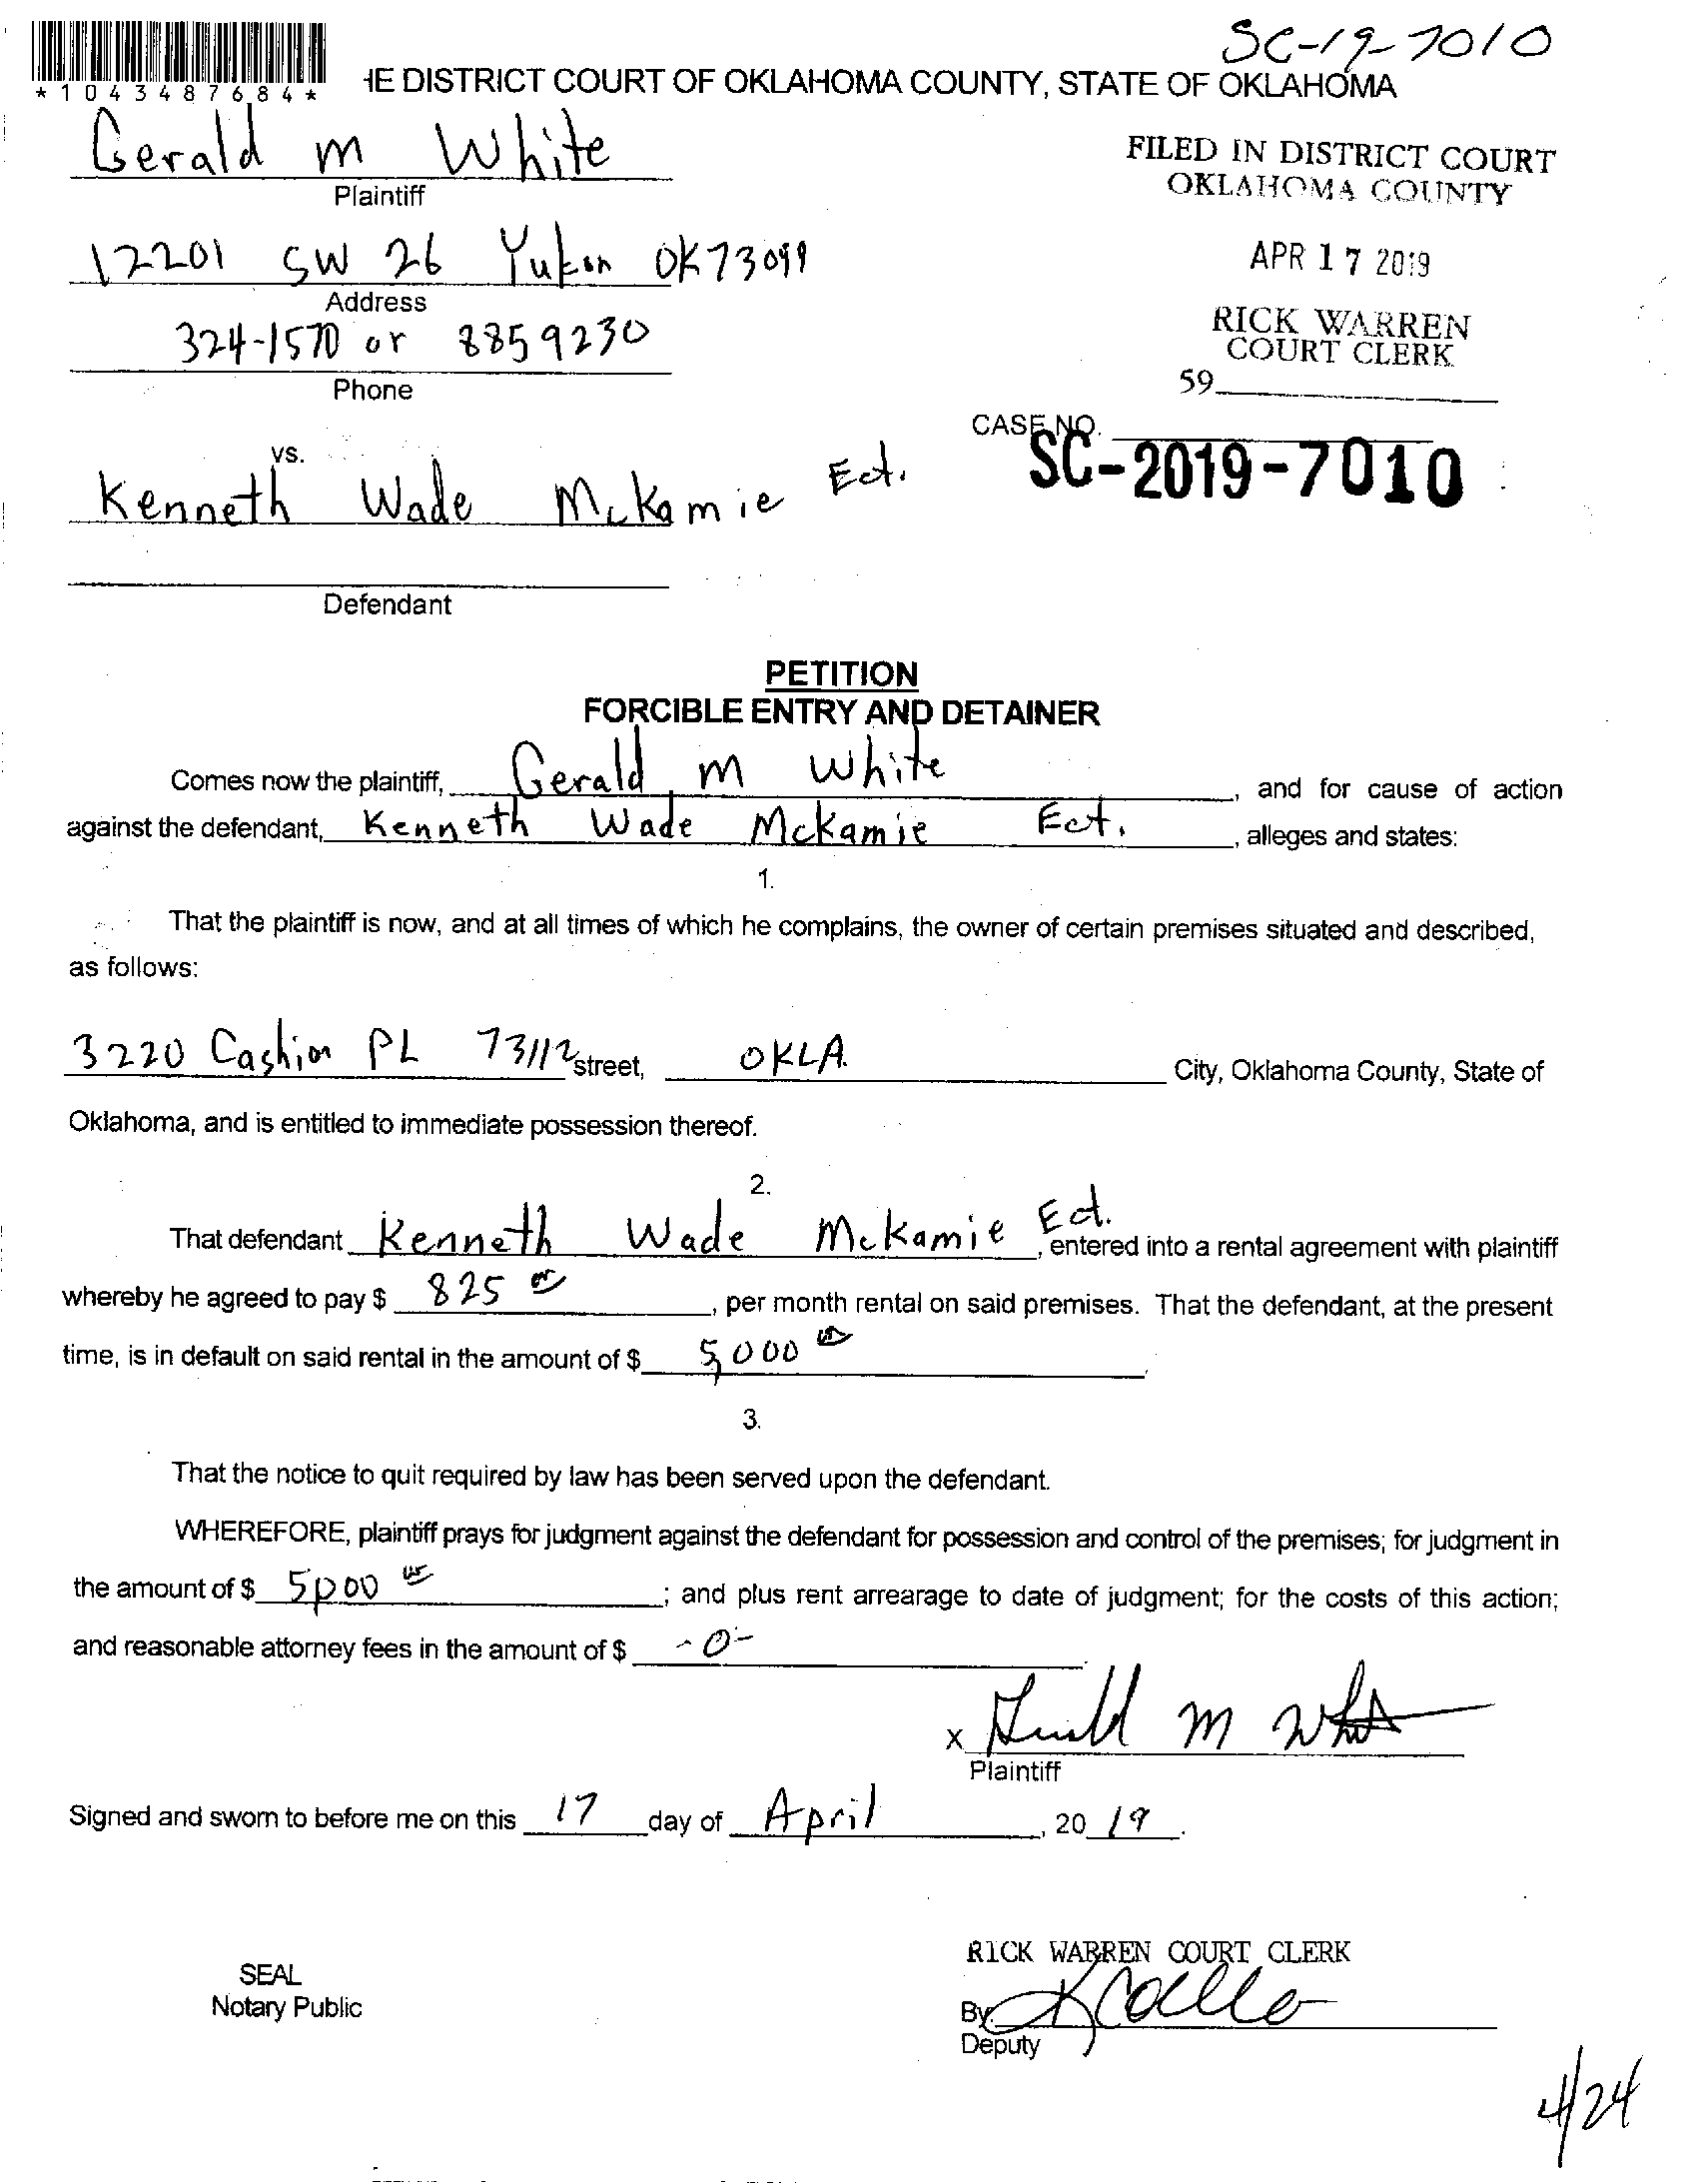 SC-19-7010
*1043487684*
HE DISTRICT COURT OF OKLAHOMA COUNTY, STATE OF OKLAHOMA
Gerald m White
Plaintiff
FILED IN DISTRICT COURT
OKLAHOMA COUNTY
12201 SW 26 Yukon OK 73099
Address
APR 17 2019
324-1570 or 8859230
Phone
RICK WARREN
COURT CLERK
59
CASE NO.
SC-2019-7010
vs.
Kenneth Wade Mckamie Ect.
Defendant
PETITION
FORCIBLE ENTRY AND DETAINER
Comes now the plaintiff, Gerald m White, and for cause of action
against the defendant, Kenneth Wade Mckamie Ect., alleges and states:
1.
That the plaintiff is now, and at all times of which he complains, the owner of certain premises situated and described,
as follows:
3220 Cashion PL 73112 street, OKLA. City, Oklahoma County, State of
Oklahoma, and is entitled to immediate possession thereof.
2.
That defendant Kenneth Wade Mckamie Ect., entered into a rental agreement with plaintiff
whereby he agreed to pay $ 825, per month rental on said premises. That the defendant, at the present
time, is in default on said rental in the amount of $ 5,000.
3.
That the notice to quit required by law has been served upon the defendant.
WHEREFORE, plaintiff prays for judgment against the defendant for possession and control of the premises; for judgment in
the amount of $ 5,000; and plus rent arrearage to date of judgment; for the costs of this action;
and reasonable attorney fees in the amount of $ -0-.
x Gerald m White
Plaintiff
Signed and sworn to before me on this 17 day of April, 2019.
SEAL
Notary Public
RICK WARREN COURT CLERK
By:
Deputy
4/24